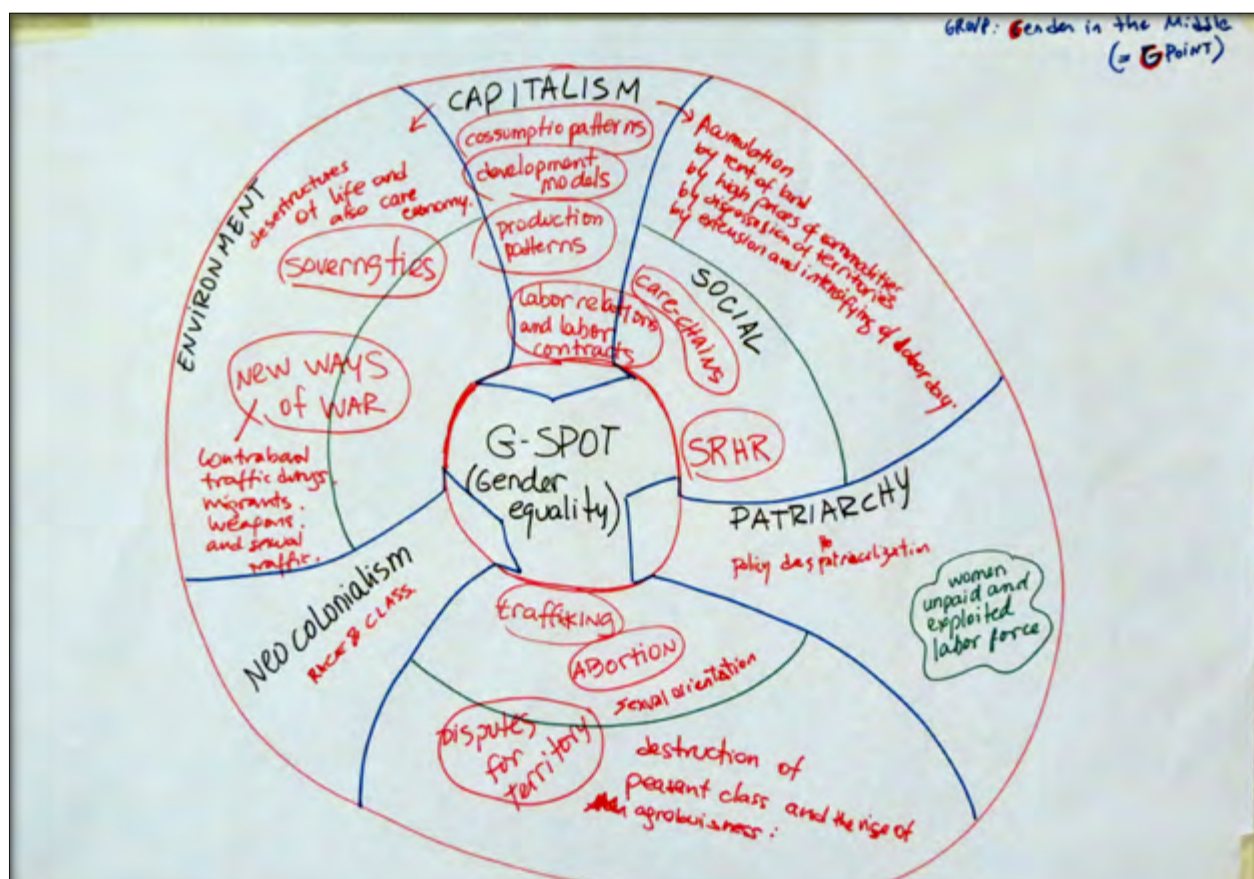 GROUP: Gender in the Middle
(= G POINT)
CAPITALISM
cossumptio patterns
development
models
production
patterns
labor relations
and labor
contracts
Acumulation
by rent of land
by high prices of commodities
by dispossesion of territories
by extension and intensifying of labor day.
SOCIAL
CARE-CHAINS
SRHR
ENVIRONMENT
desestructures
of life and
also care
economy.
SOVERNGTIES
NEW WAYS
of WAR
Contraband
traffic drugs.
migrants.
weapons.
and sexual
traffic.
G-SPOT
(Gender
equality)
PATRIARCHY
policy despatriacilization
women
unpaid and
exploited
labor force
NEOCOLONIALISM
RACE & CLASS.
traffiKING
ABORTION
sexual orientation
DISPUTES
for
territory
destruction of
peasant class and the rise of
agrobuisness: